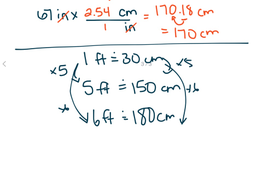 67 in × 2.54 cm / 1 in = 170.18 cm
= 170 cm
1 ft ≐ 30 cm
×5 ×5
5 ft = 150 cm
×6 ×6
6 ft ≐ 180 cm